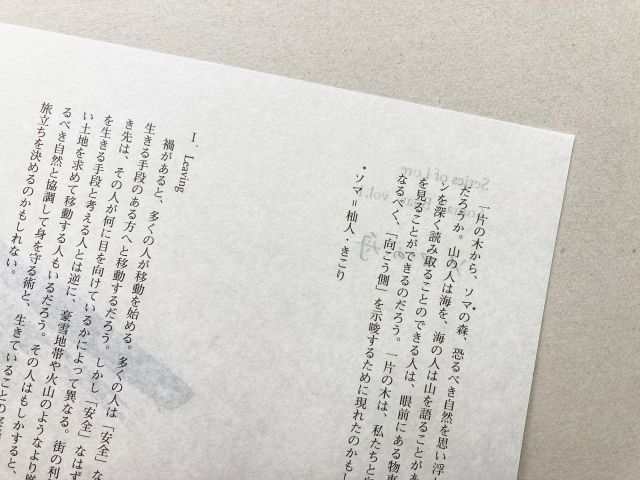 一片の木から、ソマの森、恐るべき自然を思い浮か
だろうか。山の人は海を、海の人は山を語ることがあ
ンを深く読み取ることのできる人は、眼前にある物事
を見ることができるのだろう。一片の木は、私たちと自
なるべく、「向こう側」を示唆するために現れたのかもし
・ソマ＝杣人・きこり
I. Leaving
禍があると、多くの人が移動を始める。多くの人は「安全」な
生きる手段のある方へと移動するだろう。しかし「安全」なはず
き先は、その人が何に目を向けているかによって異なる。街の利
を生きる手段と考える人とは逆に、豪雪地帯や火山のようなより厳
い土地を求めて移動する人もいるだろう。その人はもしかすると、
るべき自然と協調して身を守る術と、生きていることの
旅立ちを決めるのかもしれない。
Series of
vol.